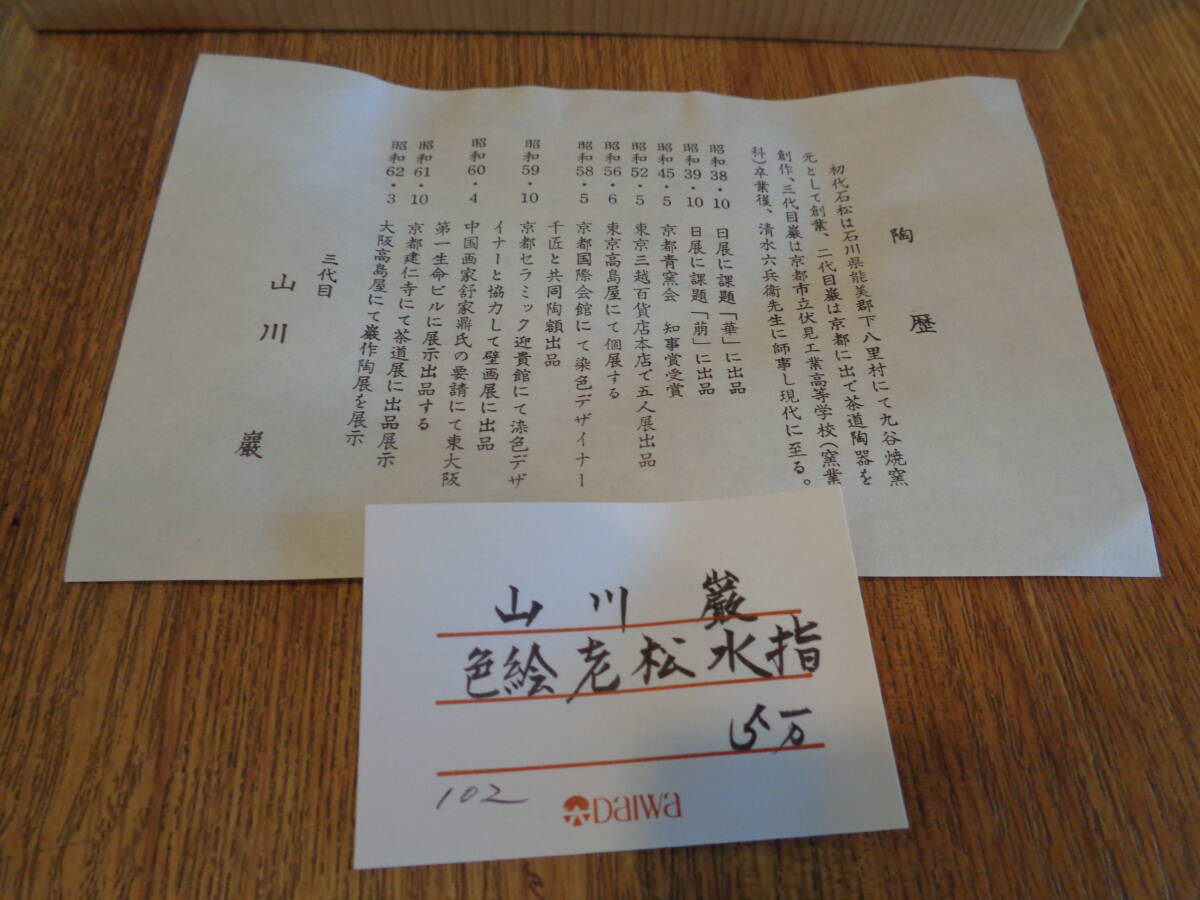 陶歴
初代石松は石川県能美郡下八里村にて九谷焼窯
元として創業、二代目巌は京都に出て茶道陶器を
創作、三代目巌は京都市立伏見工業高等学校(窯業
科)卒業後、清水六兵衛先生に師事し現代に至る。
昭和38・10 日展に課題「華」に出品
昭和39・10 日展に課題「萠」に出品
昭和45・5 京都青窯会 知事賞受賞
昭和52・5 東京三越百貨店本店で五人展出品
昭和56・6 東京高島屋にて個展する
昭和58・5 京都国際会館にて染色デザイナー
千匠と共同陶額出品
昭和59・10 京都セラミック迎賓館にて染色デザ
イナーと協力して壁画展に出品
昭和60・4 中国画家舒家鼎氏の要請にて東大阪
第一生命ビルに展示出品する
昭和61・10 京都建仁寺にて茶道展に出品展示
昭和62・3 大阪高島屋にて巌作陶展を展示
三代目
山川 巖
山川 巌
色絵老松水指
万
102
Daiwa